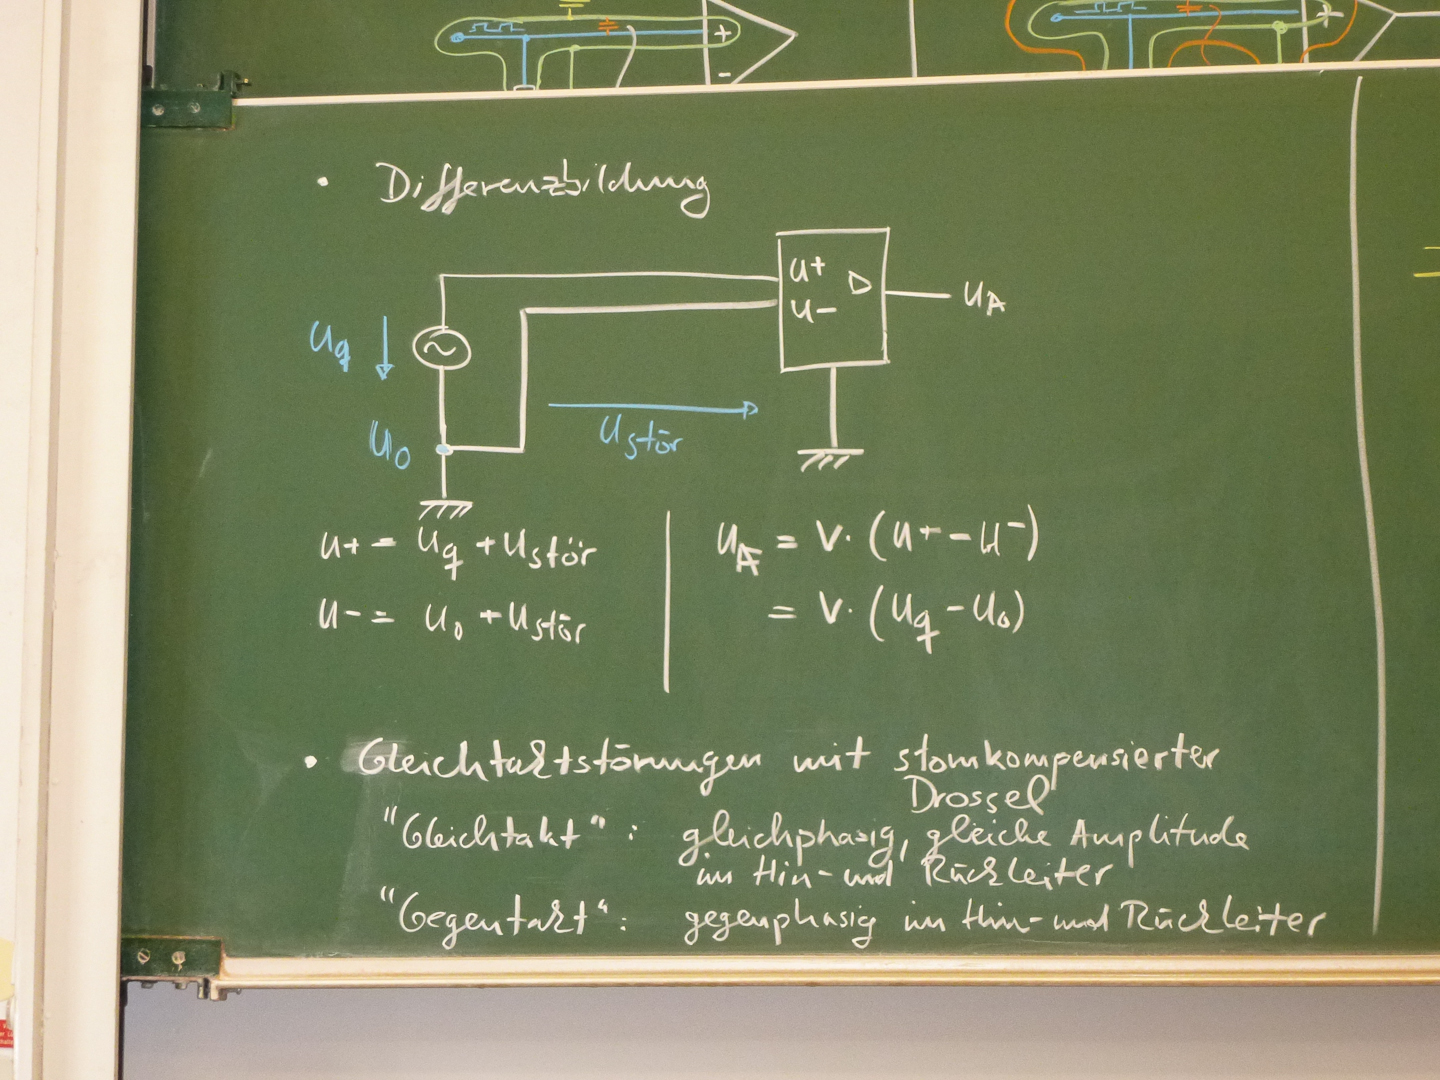 +
-
+
• Differenzbildung
U+
U-
UA
Uq
U0
Ustör
U+ = Uq + Ustör
U- = U0 + Ustör
UA = V · (U+ - U-)
= V · (Uq - U0)
• Gleichtaktstörungen mit stomkompensierter
Drossel
"Gleichtakt" : gleichphasig, gleiche Amplitude
im Hin- und Rückleiter
"Gegentakt" : gegenphasig im Hin- und Rückleiter